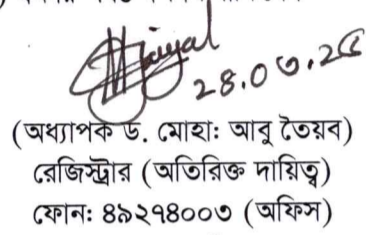 28.07.25
(অধ্যাপক ড. মোহাঃ আবু তৈয়ব)
রেজিস্ট্রার (অতিরিক্ত দায়িত্ব)
ফোনঃ ৪৯২৭৪০০৩ (অফিস)